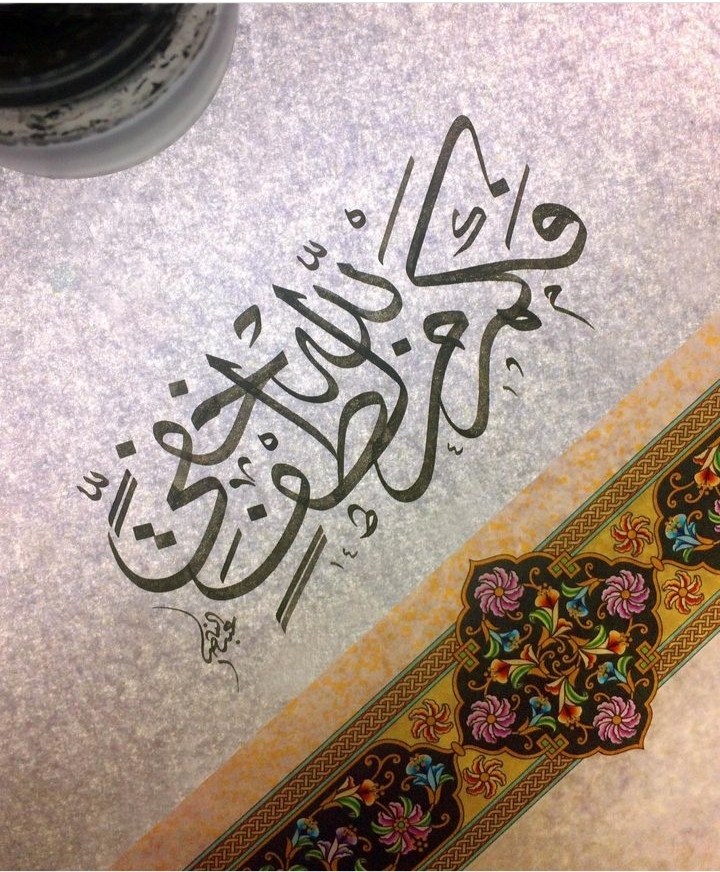 وكم لله من لطفٍ خفيّ